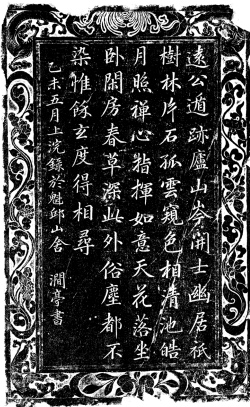 遠公遁跡廬山岑開士幽居祇
樹林片石孤雲窺色相清池皓
月照禪心指揮如意天花落坐
卧閑房春草深此外俗塵都不
染惟餘玄度得相尋
己未五月上浣錄於魁邱山舍
澗亭書